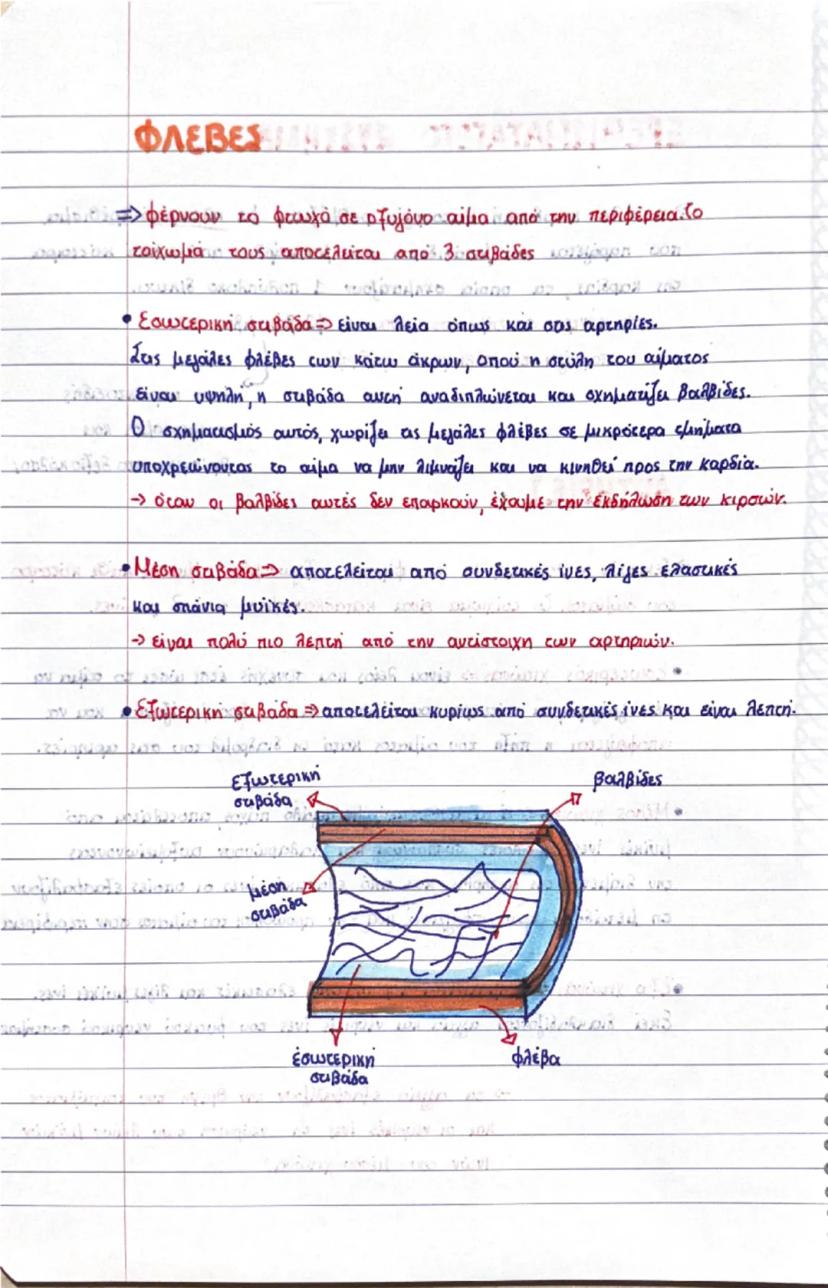 ΦΛΕΒΕΣ
=> φέρνουν το φτωχό σε οξυγόνο αίμα από την περιφέρεια. Το
τοίχωμά τους αποτελείται από 3 στιβάδες
• Εσωτερική στιβάδα => είναι λεία όπως και στις αρτηρίες.
Στις μεγάλες φλέβες των κάτω άκρων, οπού η στύλη του αίματος
είναι υψηλή, η στιβάδα αυτή αναδιπλώνεται και σχηματίζει βαλβίδες.
Ο σχηματισμός αυτός, χωρίζει τις μεγάλες φλέβες σε μικρότερα τμήματα
υποχρεώνοντας το αίμα να μην λιμνάζει και να κινηθεί προς την καρδία.
-> όταν οι βαλβίδες αυτές δεν επαρκούν, έχουμε την εκδήλωση των κιρσών.
• Μέση στιβάδα => αποτελείται από συνδετικές ίνες, λίγες ελαστικές
και σπάνια μυϊκές.
-> είναι πολύ πιο λεπτή από την αντίστοιχη των αρτηριών.
• Εξωτερική στιβάδα => αποτελείται κυρίως από συνδετικές ίνες και είναι λεπτή.
εξωτερική
στιβάδα
βαλβίδες
μέση
στιβάδα
έσωτερική
στιβάδα
φλέβα